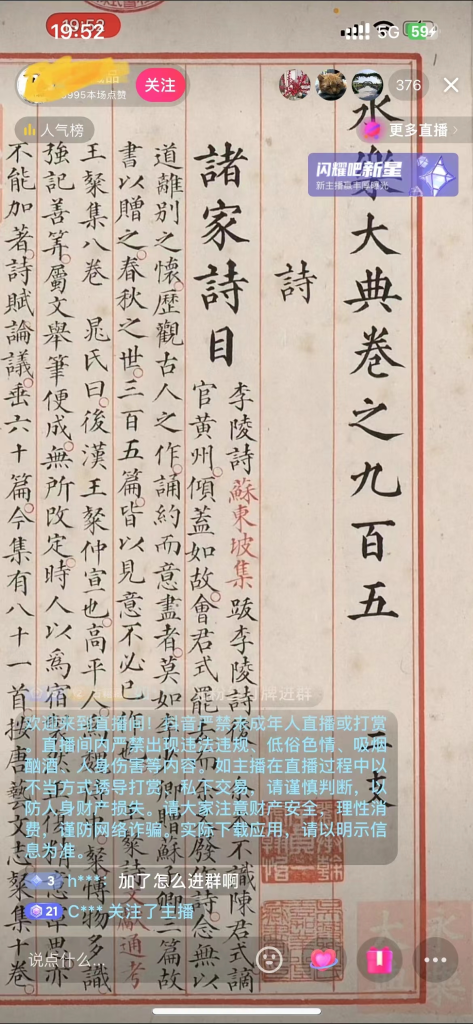 19:52
5G 59
品
5995本场点赞
关注
376
人气榜
更多直播
闪耀吧新星
新主播赢丰厚曝光
永樂大典卷之九百五 二支
詩
諸家詩目
李陵詩 蘇東坡集 跋李陵詩後 余不識陳君式謫
官黄州。傾蓋如故。會君式罷去而發作詩念無以
道離別之懷。歷觀古人之作。誦約而意盡者。莫如李陵贈蘇卿三篇故
書以贈之。春秋之世。三百五篇。皆以見意不必己作王粲詩 文獻通考
王粲集八卷 晁氏曰。後漢王粲仲宣也。高平人。粲博物多識
強記善筭。屬文舉筆便成。無所改定。時人以爲宿覃思亦
不能加。著詩賦論議。垂六十篇。今集有八十一首按唐藝文志粲集十卷
欢迎来到直播间！抖音严禁未成年人直播或打赏
。直播间内严禁出现违法违规、低俗色情、吸烟
酗酒、人身伤害等内容。如主播在直播过程中以
不当方式诱导打赏、私下交易，请谨慎判断，以
防人身财产损失。请大家注意财产安全，理性消
费，谨防网络诈骗。实际下载应用，请以明示信
息为准。
3 h***：加了怎么进群啊
21 C*** 关注了主播
说点什么...